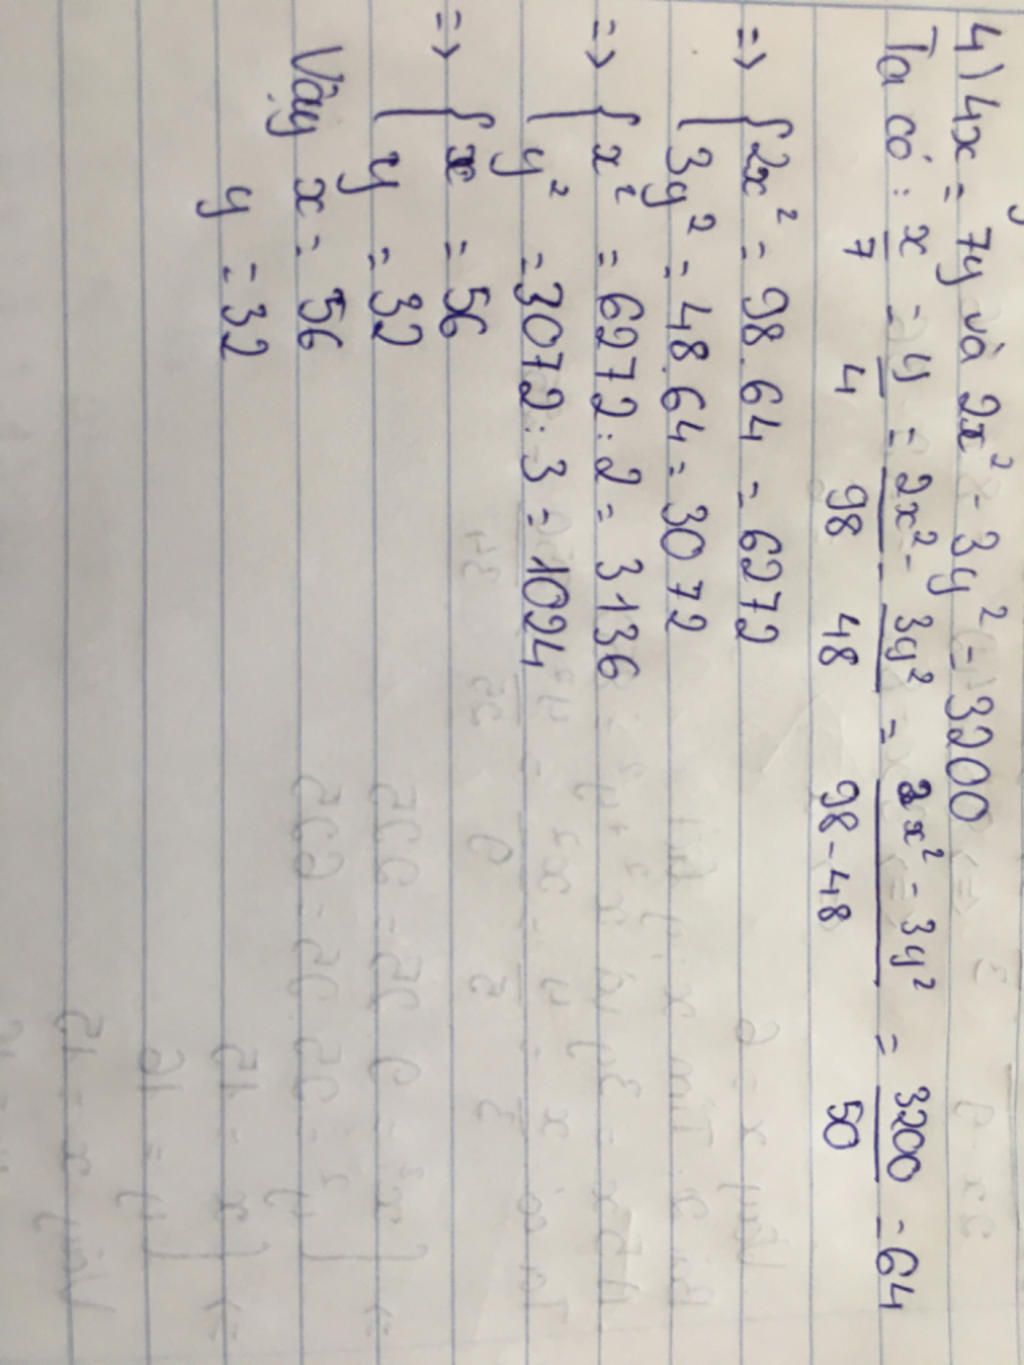 4) 4x = 7y và 2x² - 3y² = 3200
Ta có: x/7 = y/4 = 2x²/98 - 3y²/48 = 2x² - 3y²/98 - 48 = 3200/50 = 64
=> { 2x² = 98.64 = 6272
3y² = 48.64 = 3072
=> { x² = 6272 : 2 = 3136
y² = 3072 : 3 = 1024
=> { x = 56
y = 32
Vậy x = 56
y = 32